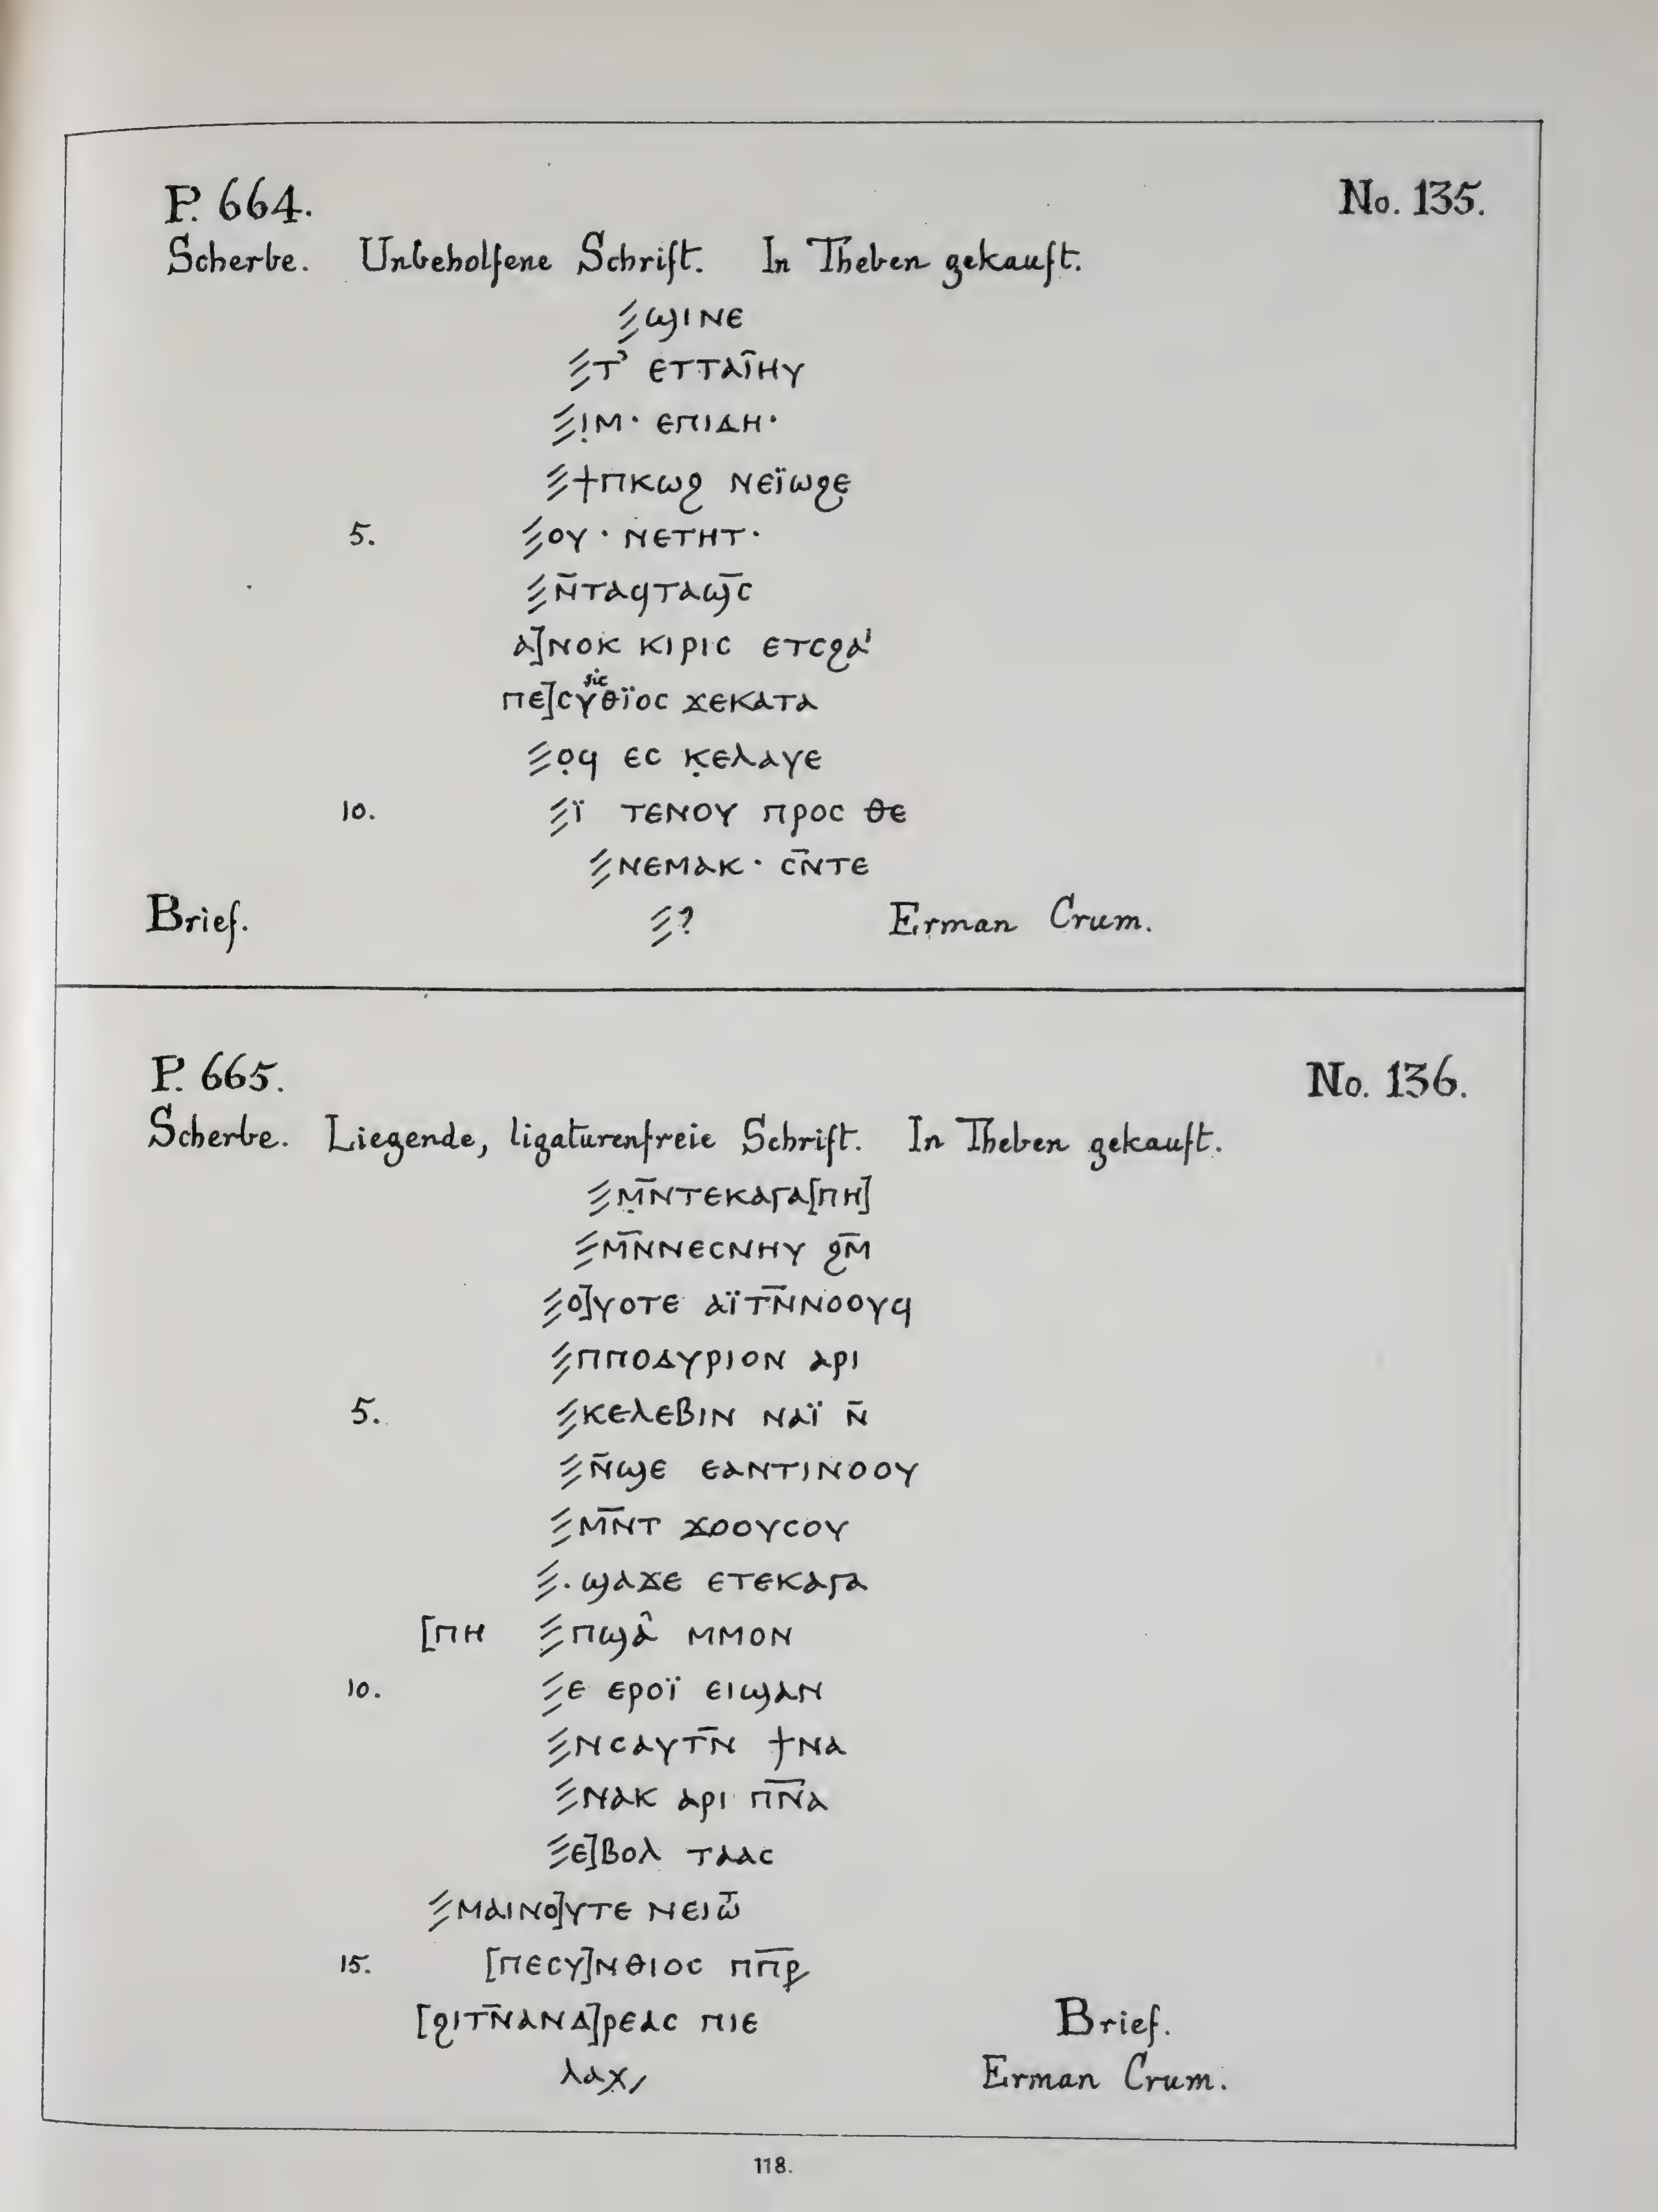 P. 664. No. 135.
Scherbe. Unbeholfene Schrift. In Theben gekauft.
⳽ϣⲓⲛⲉ
⳽ⲧʾ ⲉⲧⲧⲁⲓ̂ⲏⲩ
⳽ⲓ̣ⲙ · ⲉⲡⲓⲇⲏ ·
⳽ϯⲡⲕⲱϩ ⲛⲉⲓ̈ⲱϩⲉ
5. ⳽ⲟⲩ · ⲛⲉⲧⲏⲧ ·
⳽ⲛ̄ⲧⲁϥⲧⲁϣ̄ⲥ
ⲁ]ⲛⲟⲕ ⲕⲓⲣⲓⲥ ⲉⲧⲥϩⲁⁱ
sic
ⲡⲉ]ⲥⲩⲑⲓ̈ⲟⲥ ϫⲉⲕⲁⲧⲁ
⳽ⲟ̣ϥ ⲉⲥ ⲕ̣ⲉⲗⲁⲩⲉ
10. ⳽ⲓ̈ ⲧⲉⲛⲟⲩ ⲡⲣⲟⲥ ⲑⲉ
⳽ⲛⲉⲙⲁⲕ · ⲥⲛ̄ⲧⲉ
Brief. ⳽? Erman Crum.
P. 665. No. 136.
Scherbe. Liegende, ligaturenfreie Schrift. In Theben gekauft.
⳽ⲙ̣ⲛ̄ⲧⲉⲕⲁⲅⲁ[ⲡⲏ]
⳽ⲙⲛ̄ⲛⲉⲥⲛⲏⲩ ϩⲙ̄
⳽ⲟ]ⲩⲟⲧⲉ ⲁⲓ̈ⲧⲛ̄ⲛⲟⲟⲩϥ
⳽ⲡⲡⲟⲇⲩⲣⲓⲟⲛ ⲁⲣⲓ
5. ⳽ⲕⲉⲗⲉⲃⲓⲛ ⲛⲁⲓ̈ ⲛ̄
⳽ⲛ̄ϣⲉ ⲉⲁⲛⲧⲓⲛⲟⲟⲩ
⳽ⲙⲛ̄ⲧ ϫⲟⲟⲩⲥⲟⲩ
⳽· ϣⲁϫⲉ ⲉⲧⲉⲕⲁⲅⲁ
[ⲡⲏ ⳽ⲡϣⲁ̂ ⲙⲙⲟⲛ
10. ⳽ⲉ ⲉⲣⲟⲓ̈ ⲉⲓϣⲁⲛ
⳽ⲛⲥⲁⲩⲧⲛ̄ ϯⲛⲁ
⳽ⲛⲁⲕ ⲁⲣⲓ ⲡ̄ⲛ̄ⲁ
⳽ⲉ]ⲃⲟⲗ ⲧⲁⲁⲥ
⳽ⲙⲁⲓⲛⲟ]ⲩⲧⲉ ⲛⲉⲓⲱⷮ
15. [ⲡⲉⲥⲩ]ⲛⲑⲓⲟⲥ ⲡⲡ̄ⲣ̄
[ϩⲓⲧⲛ̄ⲁⲛⲇ]ⲣⲉⲁⲥ ⲡⲓⲉ Brief.
ⲗⲁⲭ/ Erman Crum.
118.